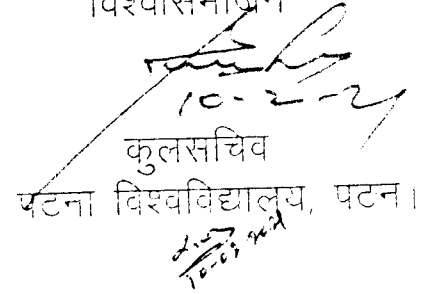 विश्वासभाजन
10-2-21
कुलसचिव
पटना विश्वविद्यालय, पटन।